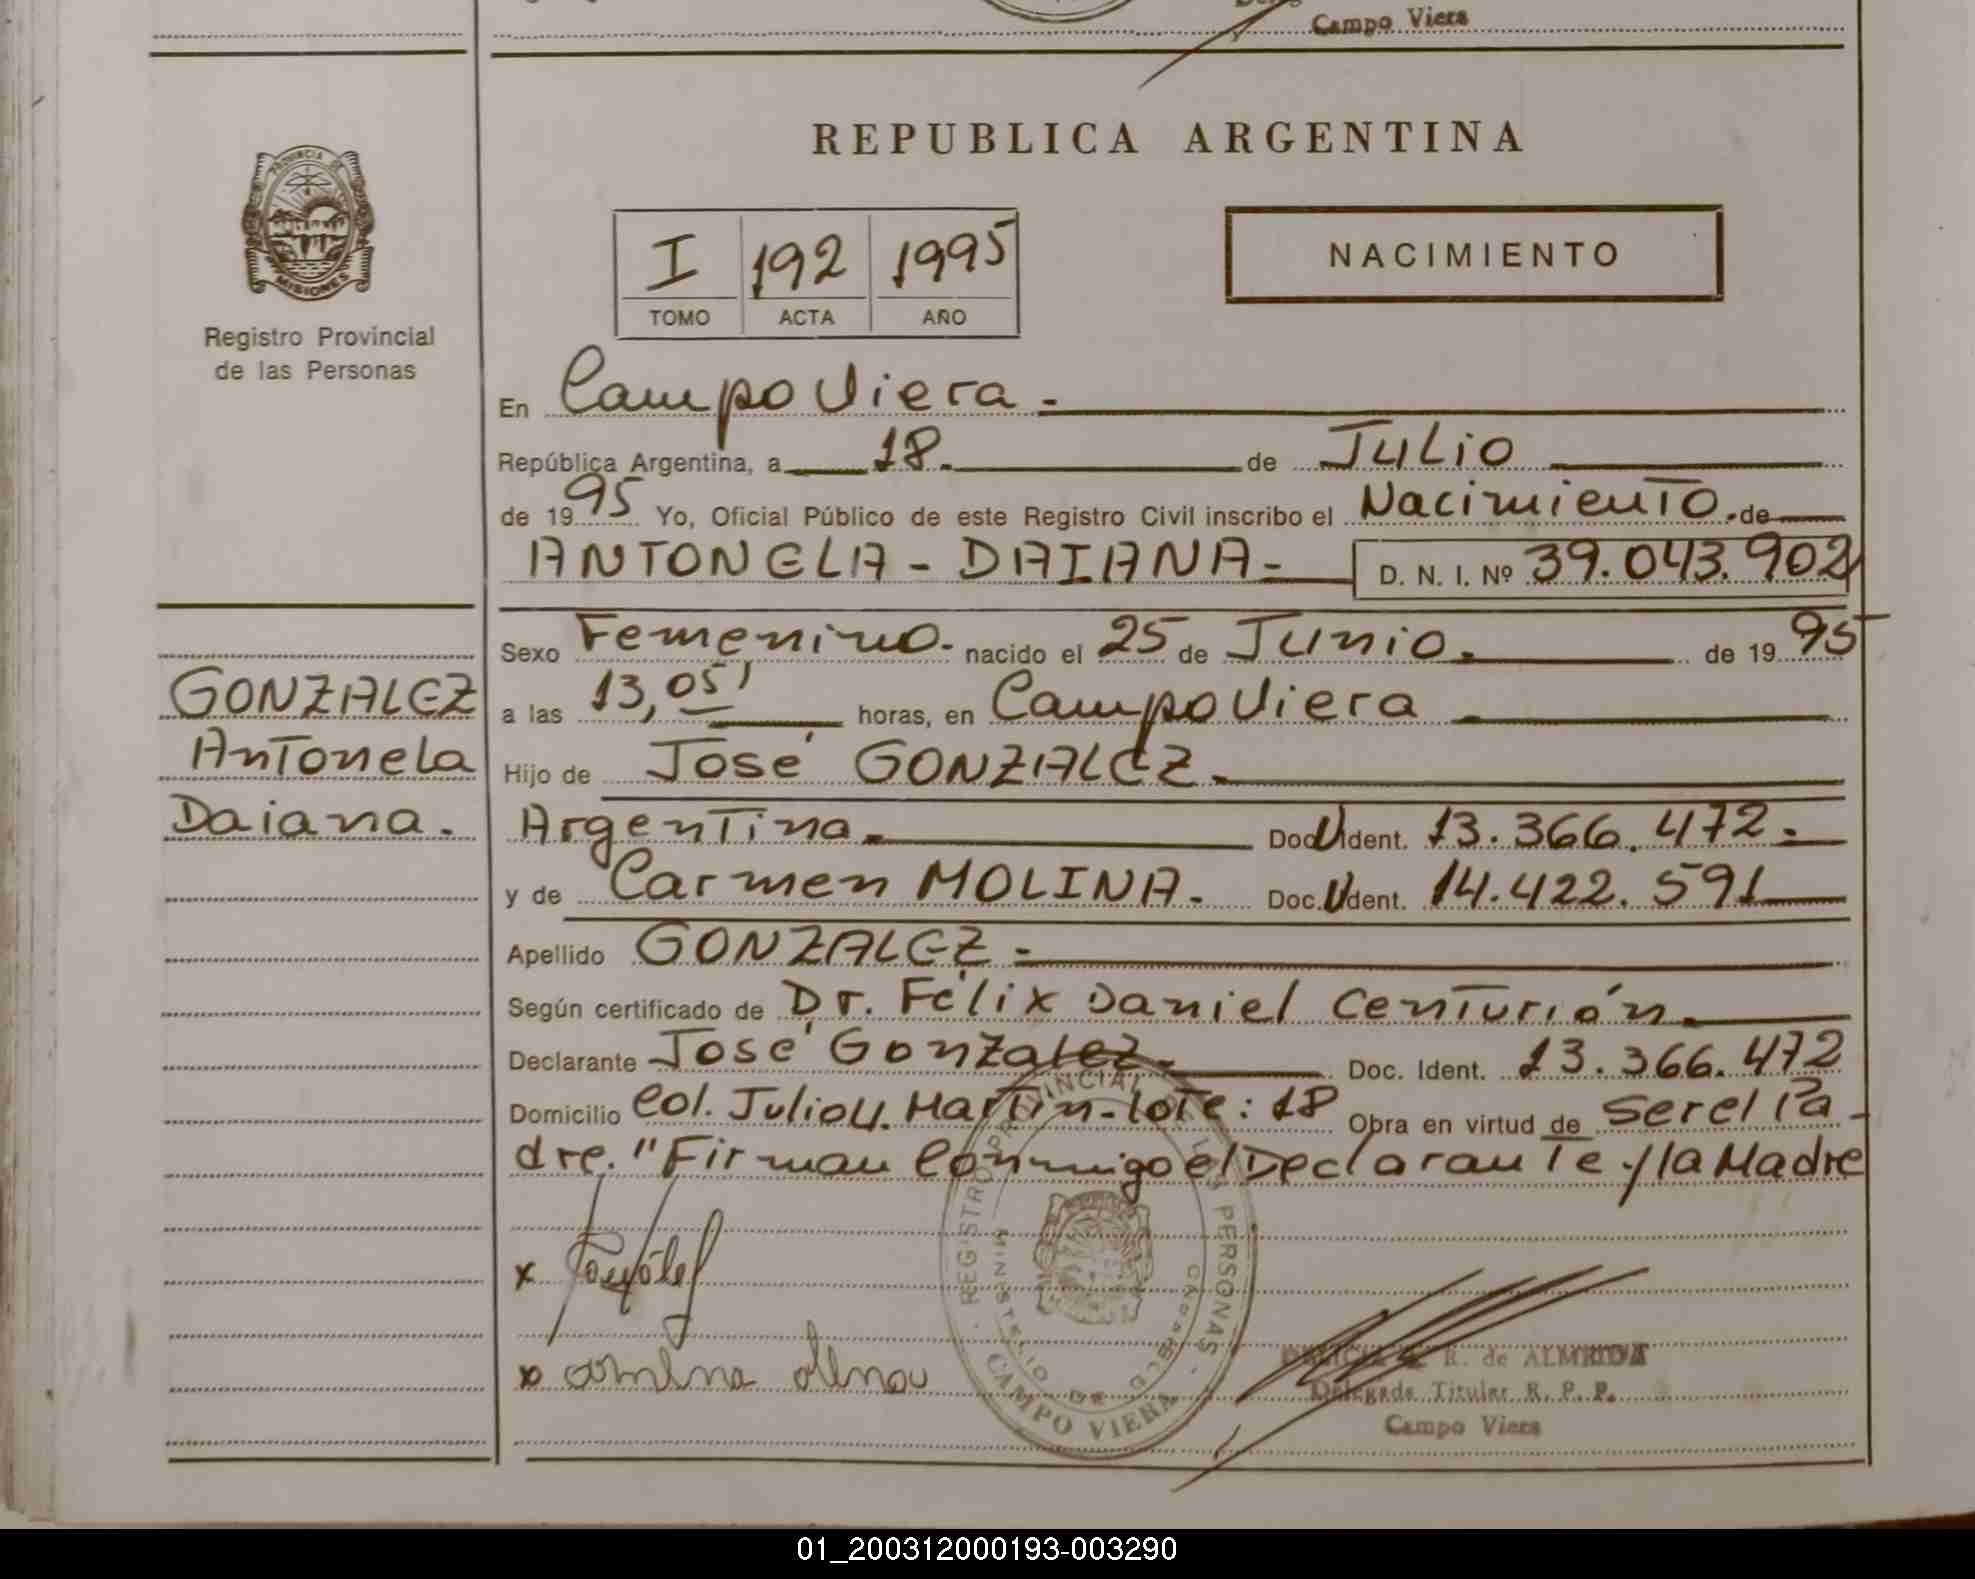 Campo Viera
REPUBLICA ARGENTINA
PROVINCIA DE
MISIONES
Registro Provincial
de las Personas
I 192 1995
TOMO ACTA AÑO
NACIMIENTO
En Campo Viera.
República Argentina, a 18. de Julio
de 1995 Yo, Oficial Público de este Registro Civil inscribo el Nacimiento. de
ANTONELA - DAIANA - D. N. I. Nº 39.043.902
Sexo Femenino. nacido el 25 de Junio. de 1995
GONZALEZ
Antonela
Daiana.
a las 13,05' horas, en Campo Viera
Hijo de José GONZALEZ.
Argentina. Doc. U Ident. 13.366.472.
y de Carmen MOLINA. Doc. U Ident. 14.422.591
Apellido GONZALEZ.
Según certificado de Dr. Félix Daniel Centurión.
Declarante José Gonzalez. Doc. Ident. 13.366.472
Domicilio Col. Julio U. Martin - lote: 18 Obra en virtud de ser el Pa-
dre. "Firman Conmigo el Declarante y la Madre
x
x
REGISTRO PROVINCIAL DE LAS PERSONAS
MINISTERIO DE
CAMPO VIERA
R. de ALMEIDA
Delegada Titular R. P. P.
Campo Viera
01_200312000193-003290